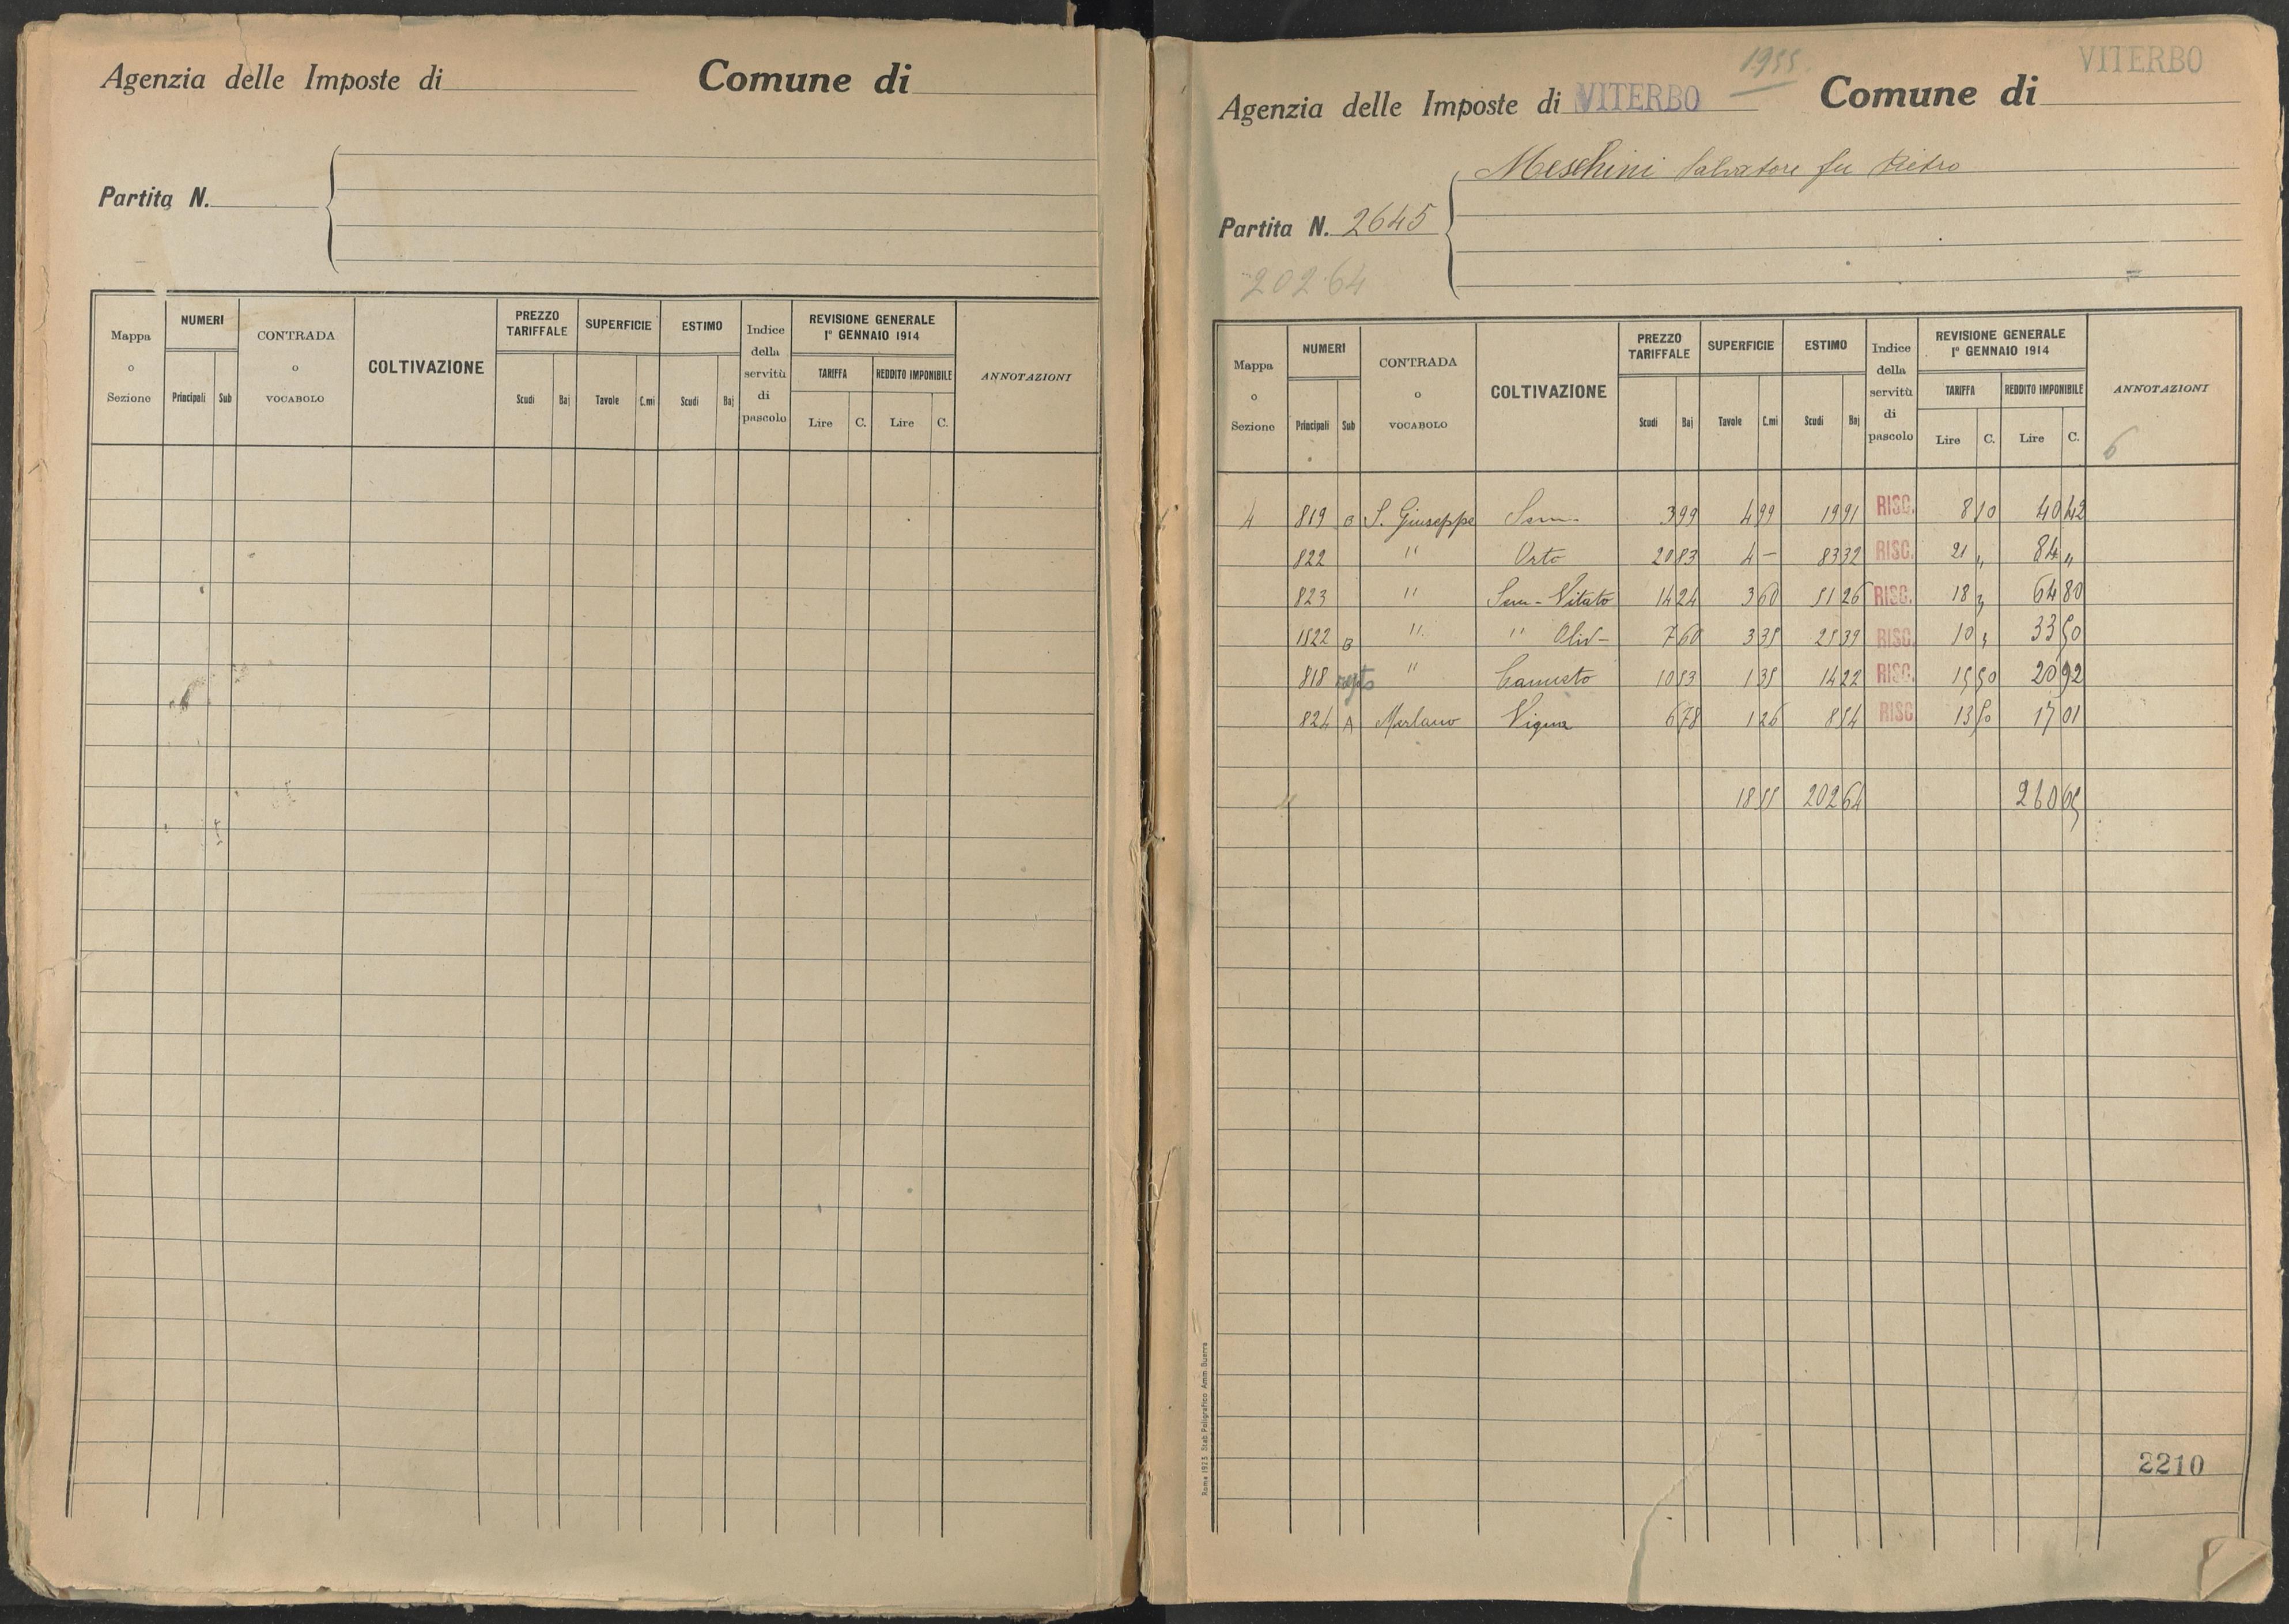 Agenzia delle Imposte di
Comune di
Partita N.
Mappa o Sezione
NUMERI
Principali Sub
CONTRADA o VOCABOLO
COLTIVAZIONE
PREZZO TARIFFALE
Scudi Baj
SUPERFICIE
Tavole C.mi
ESTIMO
Scudi Baj
Indice della servitù di pascolo
REVISIONE GENERALE 1° GENNAIO 1914
TARIFFA
Lire C.
REDDITO IMPONIBILE
Lire C.
ANNOTAZIONI
1955
VITERBO
Agenzia delle Imposte di VITERBO
Comune di
Meschini Salvatore fu Pietro
Partita N. 2645
20264
Mappa o Sezione
NUMERI
Principali Sub
CONTRADA o VOCABOLO
COLTIVAZIONE
PREZZO TARIFFALE
Scudi Baj
SUPERFICIE
Tavole C.mi
ESTIMO
Scudi Baj
Indice della servitù di pascolo
REVISIONE GENERALE 1° GENNAIO 1914
TARIFFA
Lire C.
REDDITO IMPONIBILE
Lire C.
ANNOTAZIONI
6
4 819 B S. Giuseppe Sem. 3 99 4 99 19 91 RISC. 8 10 40 42
822 " Orto 20 83 4 - 83 32 RISC. 21 " 84 "
823 " Sem-Vitato 14 24 3 60 51 26 RISC. 18 " 64 80
1522 B " " Oliv- 7 60 3 35 25 39 RISC. 10 " 33 50
818 " Canneto 10 53 1 35 14 22 RISC. 15 50 20 92
824 A Merlano Vigna 6 78 1 26 8 54 RISC. 13 50 17 01
18 55 202 64 260 65
2210
Roma 1923 Stab. Poligrafico Amm. Guerra